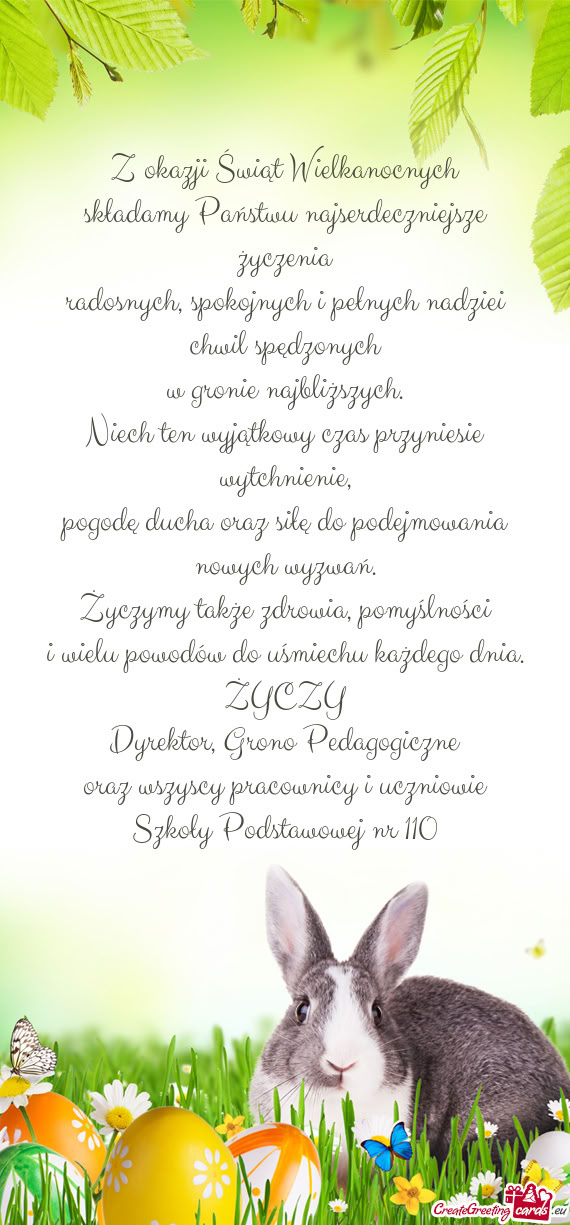 Z okazji Świąt Wielkanocnych
składamy Państwu najserdeczniejsze
życzenia
radosnych, spokojnych i pełnych nadziei
chwil spędzonych
w gronie najbliższych.
Niech ten wyjątkowy czas przyniesie
wytchnienie,
pogodę ducha oraz siłę do podejmowania
nowych wyzwań.
Życzymy także zdrowia, pomyślności
i wielu powodów do uśmiechu każdego dnia.
ŻYCZY
Dyrektor, Grono Pedagogiczne
oraz wszyscy pracownicy i uczniowie
Szkoły Podstawowej nr 110
CreateGreeting cards.eu